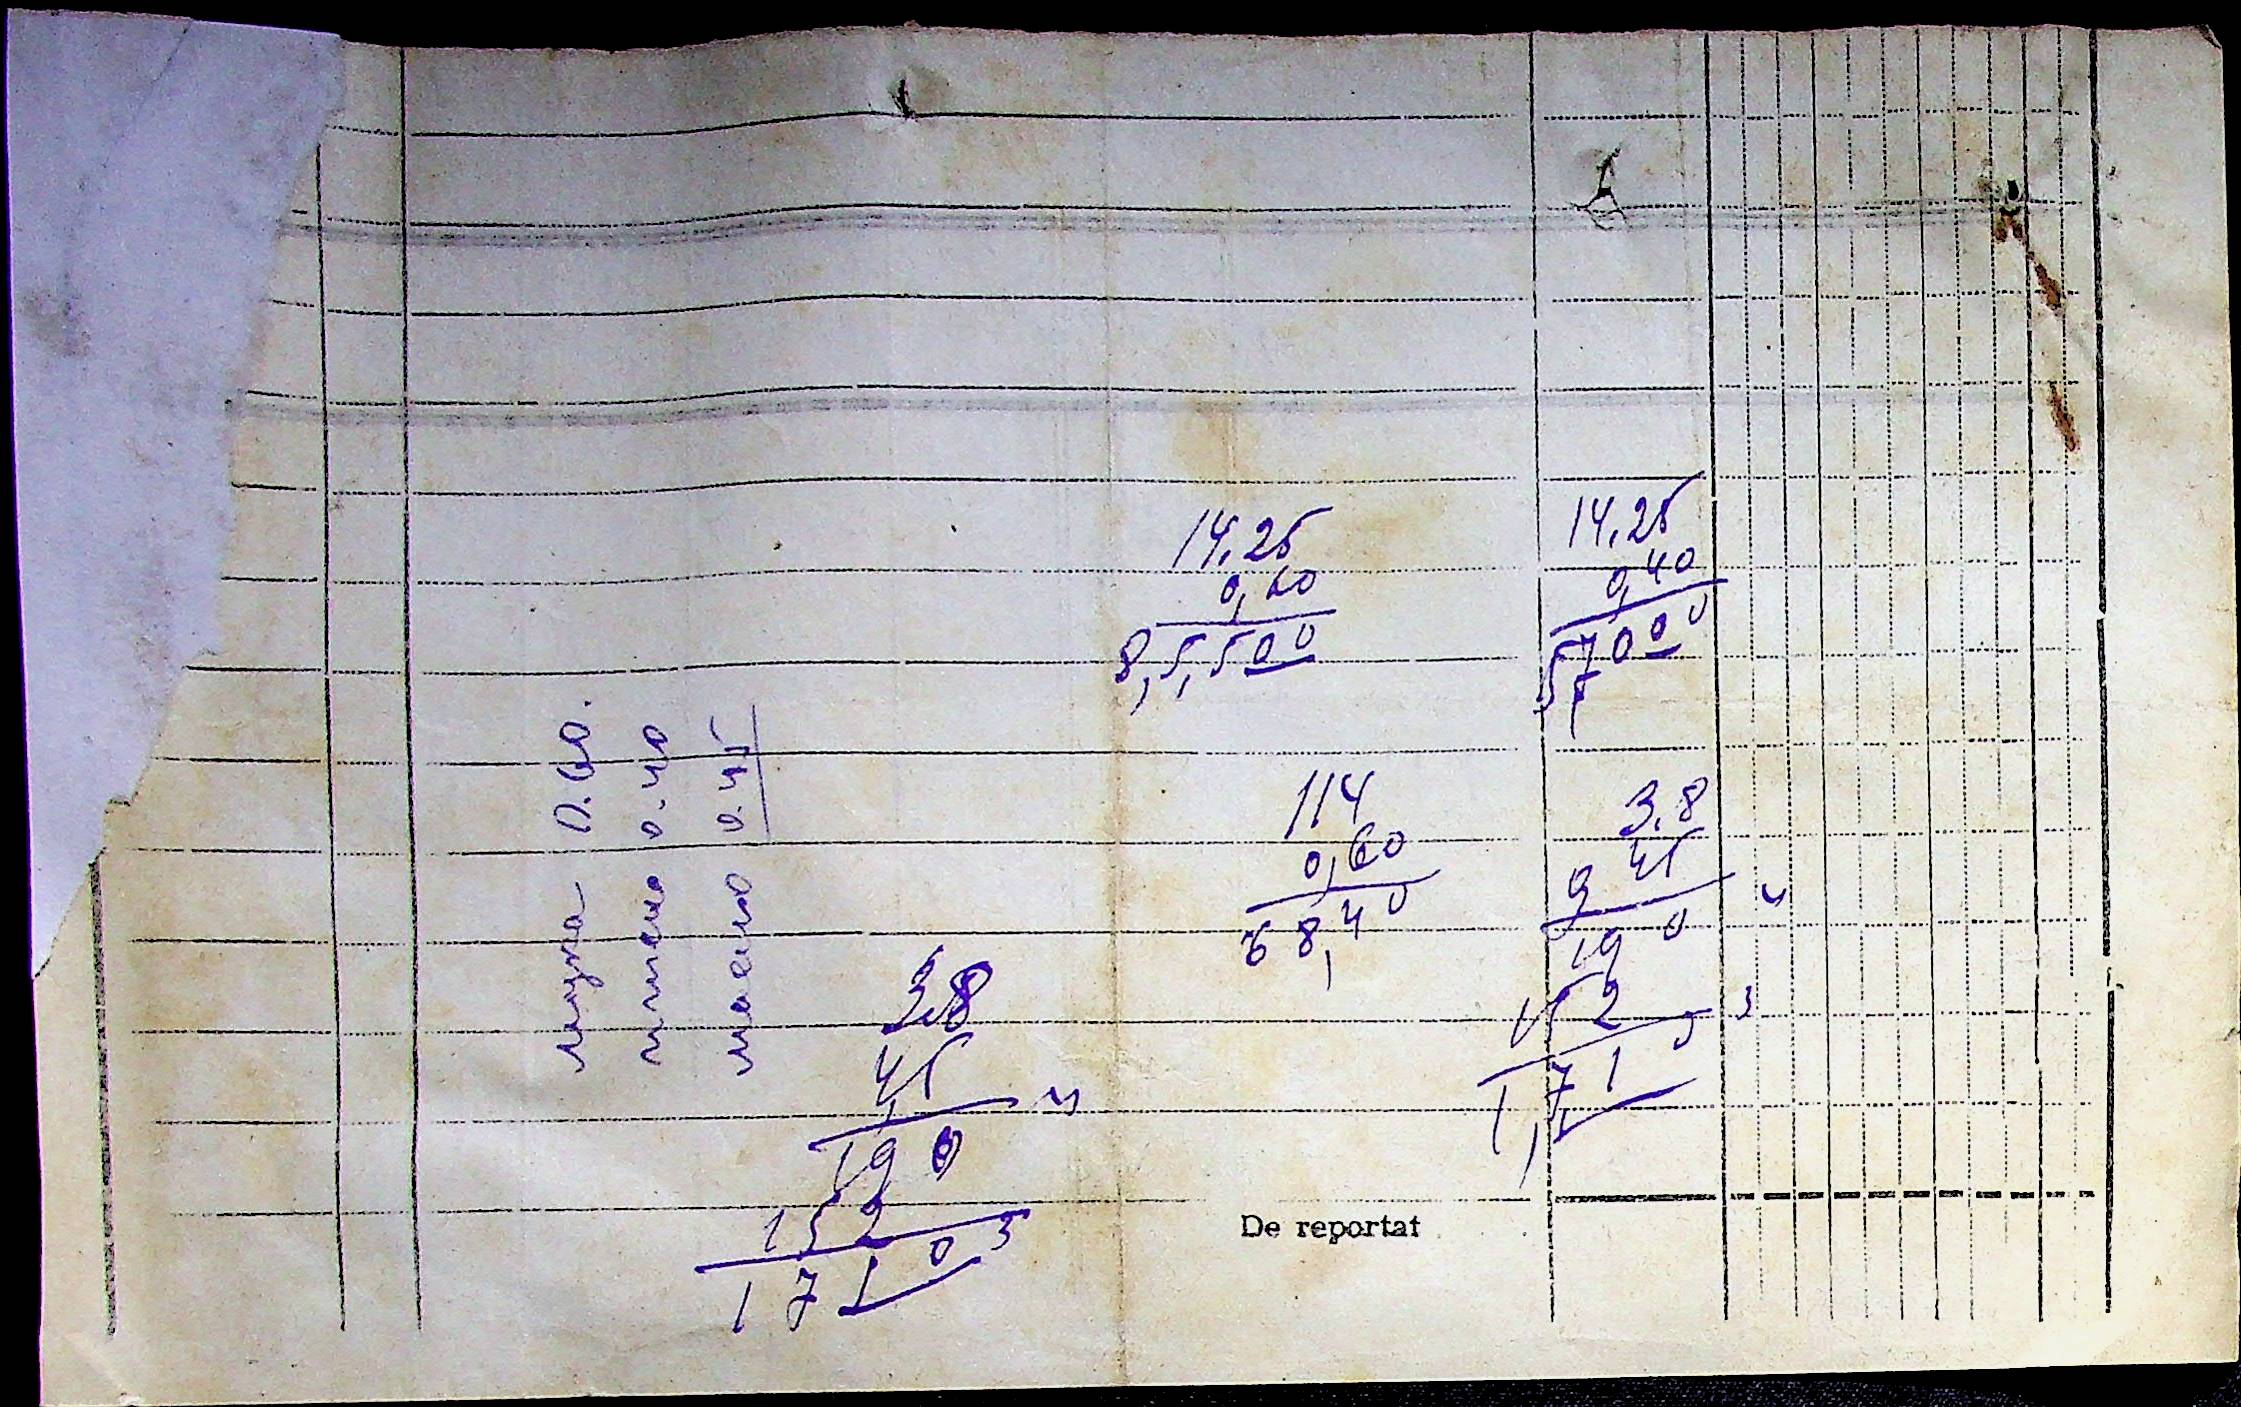 мука 0.60.
пшено 0.40
масло 0.45
14,25
0,60
8,5,500
14,25
0,40
57000
114
0,60
68,40
3,8
45
190
152
1,71
3,8
4,5
190
152
1710
De reportat